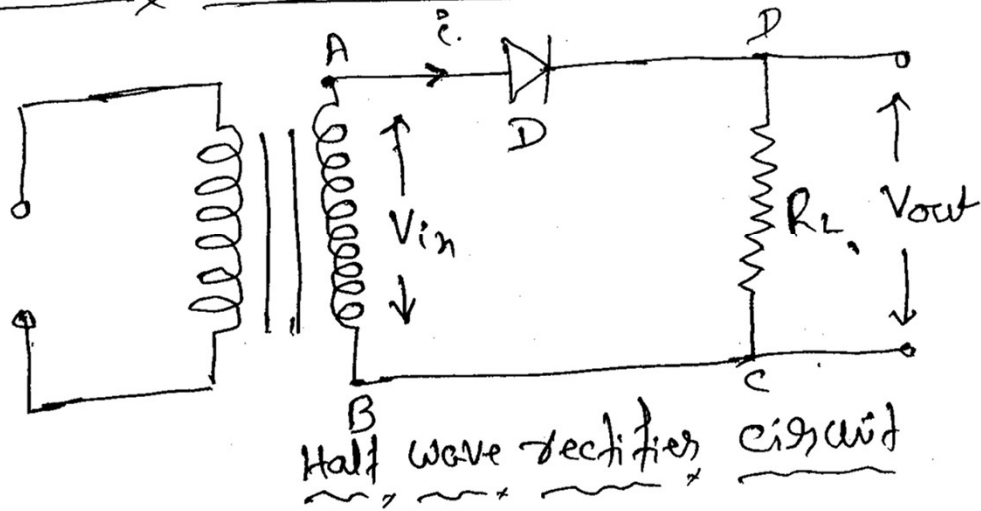 A
i.
D
D
Vin
RL
Vout
B
C
Half wave rectifier circuit